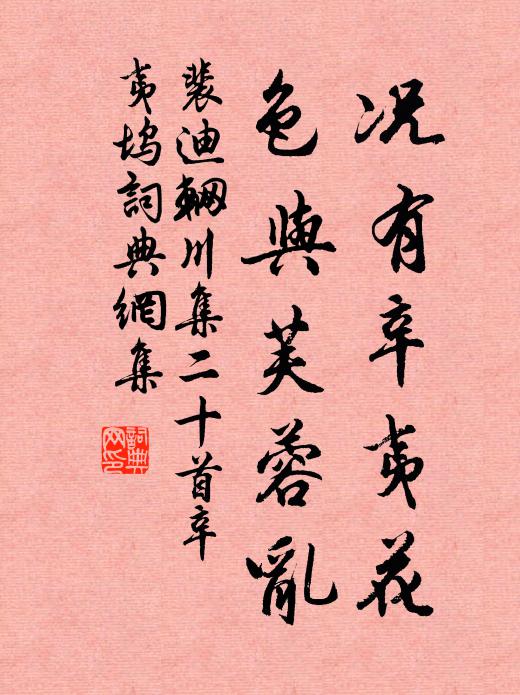 况有辛夷花
色與芙蓉亂
裴迪輞川集二十首辛
夷塢詞典網集
詞典
网印